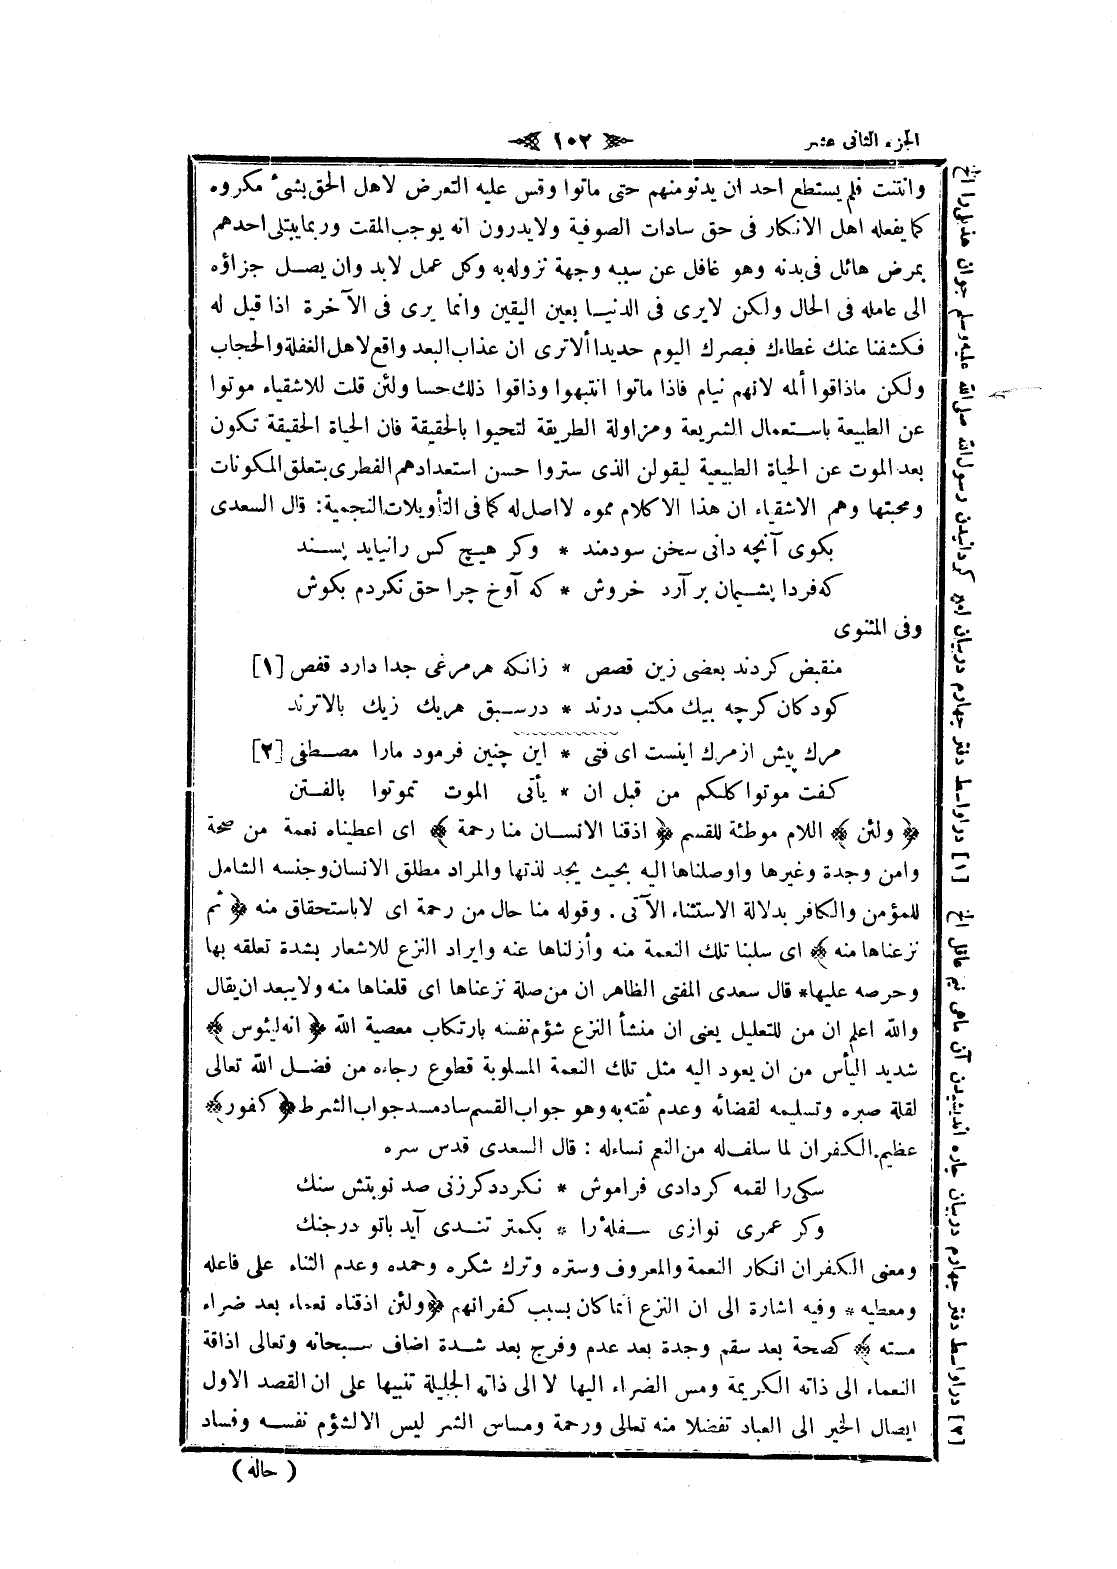 الجزء الثانى عشر
١٠٢
وانتنت فلم يستطع احد ان يدنو منهم حتى ماتوا وقس عليه التعرض لاهل الحق بشىء مكروه
كما يفعله اهل الانكار فى حق سادات الصوفية ولا يدرون انه يوجب المقت وربما يبتلى احدهم
بمرض هائل فى بدنه وهو غافل عن سببه وجهة نزوله به وكل عمل لابد وان يصل جزاؤه
الى عامله فى الحال ولكن لا يرى فى الدنيا بعين اليقين وانما يرى فى الآخرة اذا قيل له
فكشفنا عنك غطاءك فبصرك اليوم حديد ألا ترى ان عذاب البعد واقع لاهل الغفلة والحجاب
ولكن ماذاقوا ألمه لانهم نيام فاذا ماتوا انتبهوا وذاقوا ذلك حسا ولئن قلت للاشقياء موتوا
عن الطبيعة باستعمال الشريعة ومزاولة الطريقة لتحيوا بالحقيقة فان الحياة الحقيقة تكون
بعد الموت عن الحياة الطبيعية ليقولن الذى ستروا حسن استعدادهم الفطرى بتعلق المكونات
ومحبتها وهم الاشقياء ان هذا الاكلام مموه لا اصل له كما فى التأويلات النجمية : قال السعدى
بكوى آنچه دانى سخن سودمند * وكر هيچ كس را نيايد پسند
كه فردا پشيمان بر آرد خروش * كه آوخ چرا حق نكردم بكوش
وفى المثنوى
منقبض كردند بعضى زين قصص * زانكه هر مرغى جدا دارد قفص [١]
كودكان كرچه بيك مكتب درند * در سبق هريك زيك بالاترند
مرك پيش از مرك اينست اى فتى * اين چنين فرمود مارا مصطفى [٢]
كفت موتوا كلكم من قبل ان * يأتى الموت تموتوا بالفتن
﴿ ولئن ﴾ اللام موطئة للقسم ﴿ اذقنا الانسان منا رحمة ﴾ اى اعطيناه نعمة من صحة
وامن وجدة وغيرها واوصلناها اليه بحيث يجد لذتها والمراد مطلق الانسان وجنسه الشامل
للمؤمن والكافر بدلالة الاستثناء الآتى . وقوله منا حال من رحمة اى لا باستحقاق منه ﴿ ثم
نزعناها منه ﴾ اى سلبنا تلك النعمة منه وأزلناها عنه وايراد النزع للاشعار بشدة تعلقه بها
وحرصه عليها * قال سعدى المفتى الظاهر ان من صلة نزعناها اى قلعناها منه ولا يبعد ان يقال
والله اعلم ان من للتعليل يعنى ان منشأ النزع شؤم نفسه بارتكاب معصية الله ﴿ انه ليئوس ﴾
شديد اليأس من ان يعود اليه مثل تلك النعمة المسلوبة قطوع رجاءه من فضل الله تعالى
لقلة صبره وتسليمه لقضائه وعدم ثقته به وهو جواب القسم ساد مسد جواب الشرط ﴿ كفور ﴾
عظيم الكفران لما سلف له من النعم نساء له : قال السعدى قدس سره
سكى را لقمه كر دادى فراموش * نكردد كر زنى صد نوبتش سنك
وكر عمرى نوازى سفله را * بكمتر تندى آيد باتو در جنك
ومعنى الكفران انكار النعمة والمعروف وستره وترك شكره وحمده وعدم الثناء على فاعله
ومعطيه * وفيه اشارة الى ان النزع انما كان بسبب كفرانهم ﴿ ولئن اذقناه نعماء بعد ضراء
مسته ﴾ كصحة بعد سقم وجدة بعد عدم وفرج بعد شدة اضاف سبحانه وتعالى اذاقة
النعماء الى ذاته الكريمة ومس الضراء اليها لا الى ذاته الجليلة تنبيها على ان القصد الاول
ايصال الخير الى العباد تفضلا منه تعالى ورحمة ومساس الشر ليس الا لشؤم نفسه وفساد
( حاله )
[١] در اواسط دفتر چهارم در بيان امير كردانيدن رسول الله صلى الله عليه وسلم جوان هذيلى را الخ
[٢] در اواسط دفتر چهارم در بيان چاره انديشيدن آن ماهى نيم عاقل الخ